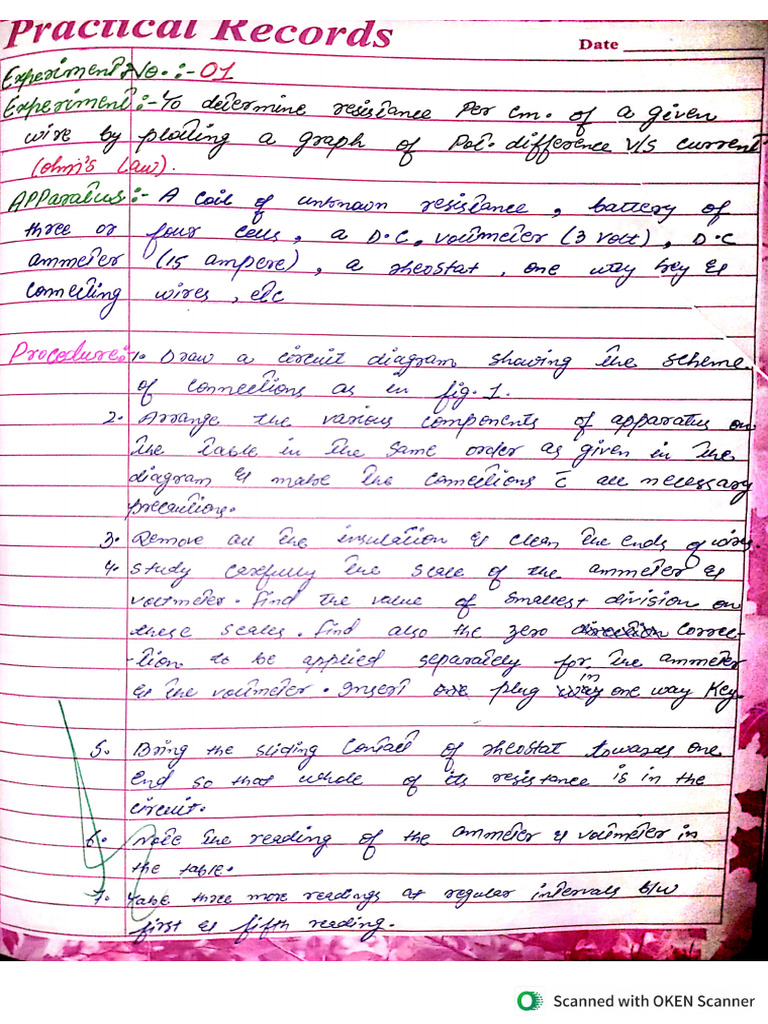 Practical Records
Date
Experiment No. :- 01
Experiment :- To determine resistance Per cm. of a given
wire by plotting a graph of Pot. difference v/s current
(ohm's Law).
APParatus :- A coil of unknown resistance, battery of
three or four cells, a D.C. voltmeter (3 volt), D.C
ammeter (15 ampere), a rheostat, one way key &
connecting wires, etc
Procedure :- 1. Draw a circuit diagram showing the scheme
of connections as in fig. 1.
2. Arrange the various components of apparatus on
the table in the same order as given in the
diagram & make the connections c̄ all necessary
precautions.
3. Remove all the insulation & clean the ends of wires.
4. Study carefully the scale of the ammeter &
voltmeter. Find the value of smallest division on
these scales. find also the zero correc-
-tion to be applied separately for the ammeter
& the voltmeter. Insert plug in one way Key.
5. Bring the sliding Contact of rheostat towards one
end so that whole of its resistance is in the
circuit.
6. Note the reading of the ammeter & voltmeter in
the table.
7. Take three more readings at regular intervals b/w
first & fifth reading.
Scanned with OKEN Scanner